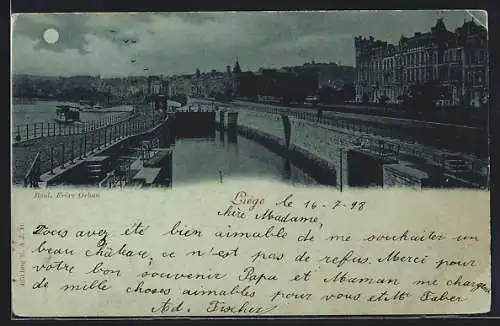 Boul. Frère Orban
Liège le 16-7-98
Chère Madame,
Vous avez été bien aimable de me souhaiter un
beau château, ce n'est pas de refus. Merci pour
votre bon souvenir Papa et Maman me charge
de mille choses aimables pour vous et Mr Faber
Ad. Fischer